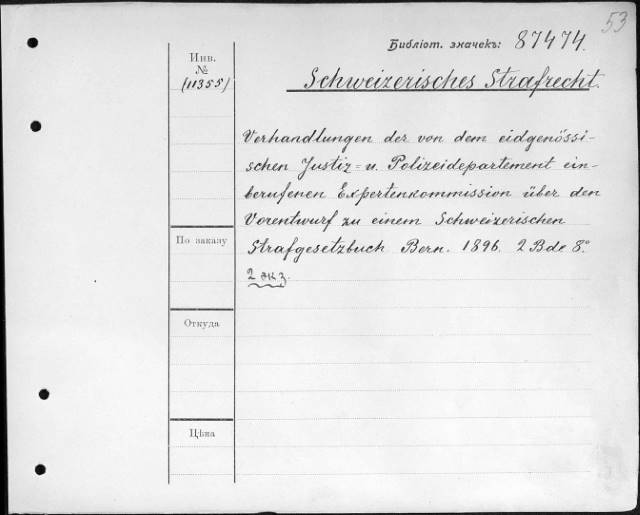 53
Библіот. значекъ: 87474.
Инв.
№
(11355)
Schweizerisches Strafrecht.
Verhandlungen der von dem eidgenössi-
schen Justiz= u. Polizeidepartement ein-
berufenen Expertenkommission über den
Vorentwurf zu einem Schweizerischen
Strafgesetzbuch Bern. 1896. 2 Bde 8°
2 экз.
По заказу
Откуда
Цѣна